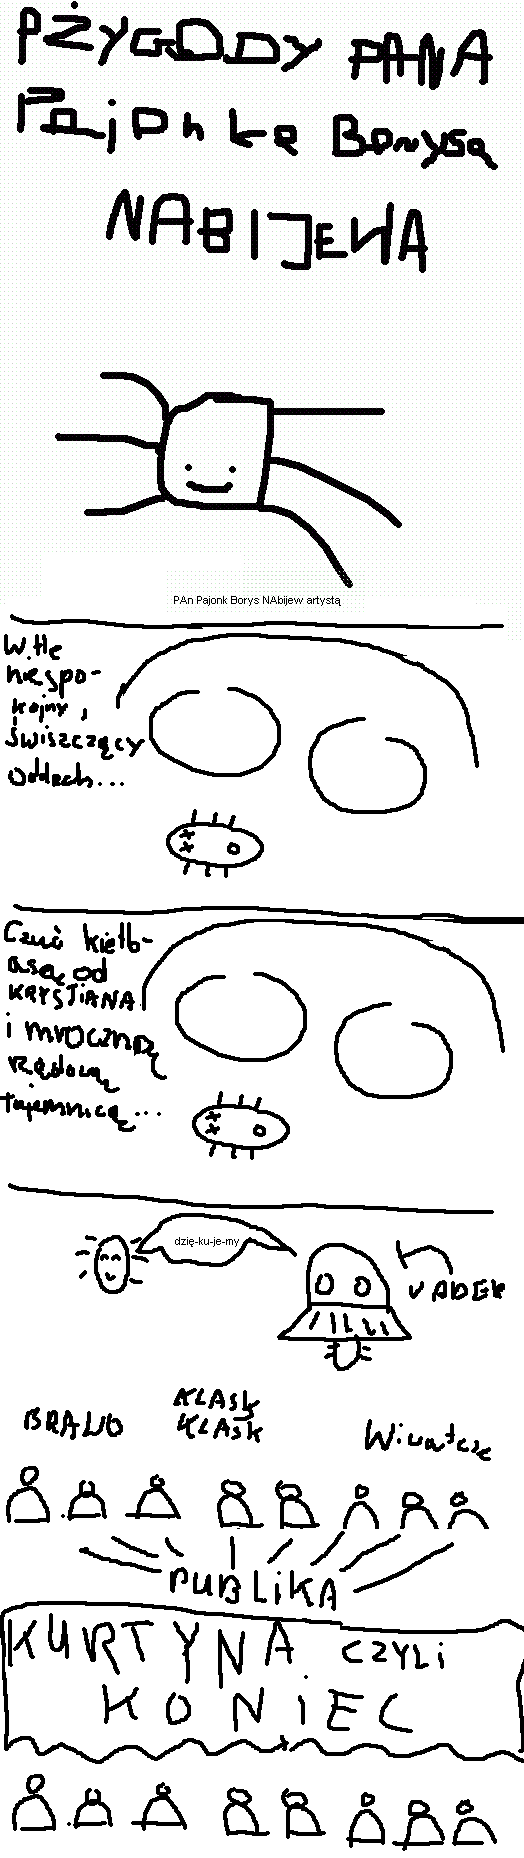 PŻYGODY PANA
PAjOnKA BORYSA
NABIJEWA
PAn Pajonk Borys NAbijew artystą
W tle
niespo-
kojny,
świszczący
oddech...
Czuć kiełb-
asą od
KRYSTIANA
i mroczną
rządową
tajemnicą...
dzię-ku-je-my
VADER
BRAWO
KLASK
KLASK
Wiwatsze
PUBLiKA
KURTYNA CZYLi
KONiEC